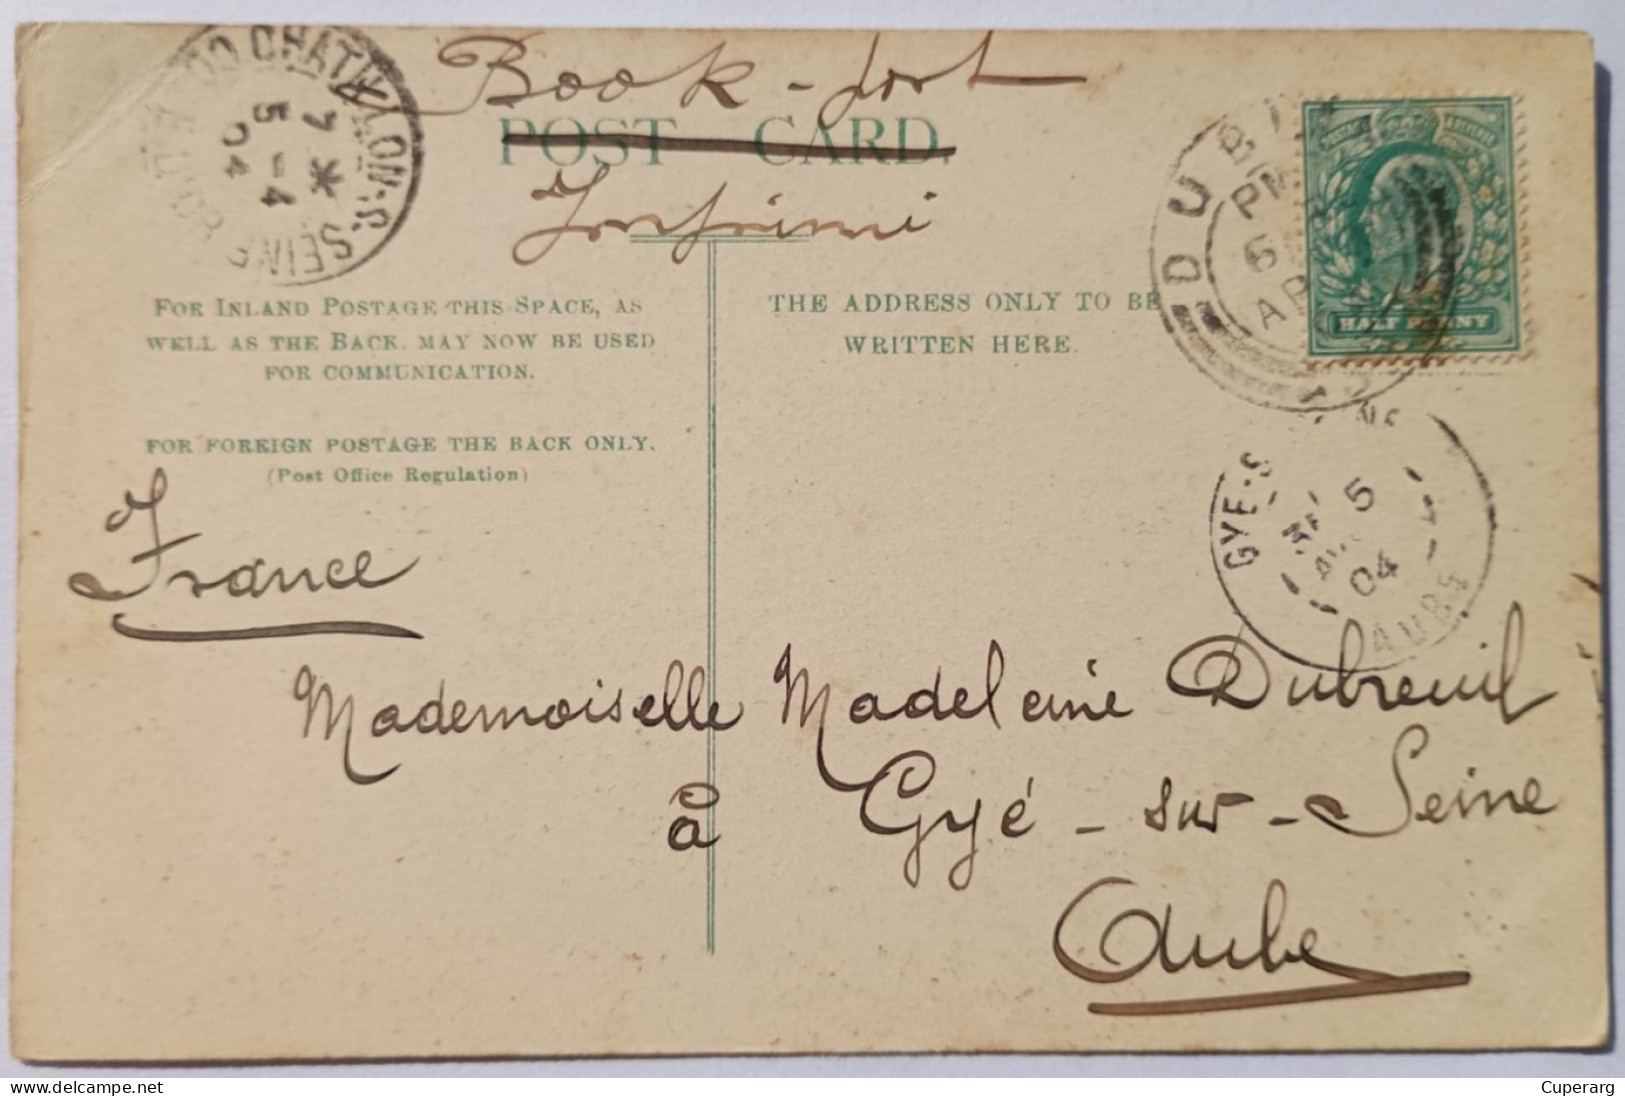 Book-post
POST CARD.
Imprimé
FOR INLAND POSTAGE THIS SPACE, AS
WELL AS THE BACK, MAY NOW BE USED
FOR COMMUNICATION.
FOR FOREIGN POSTAGE THE BACK ONLY.
(Post Office Regulation)
THE ADDRESS ONLY TO BE
WRITTEN HERE.
HALF PENNY
7 *
5 - 4
04
PM
5
04
AUBE
France
Mademoiselle Madeleine Dubreuil
à Gyé-sur-Seine
Aube
www.delcampe.net
Cuperarg